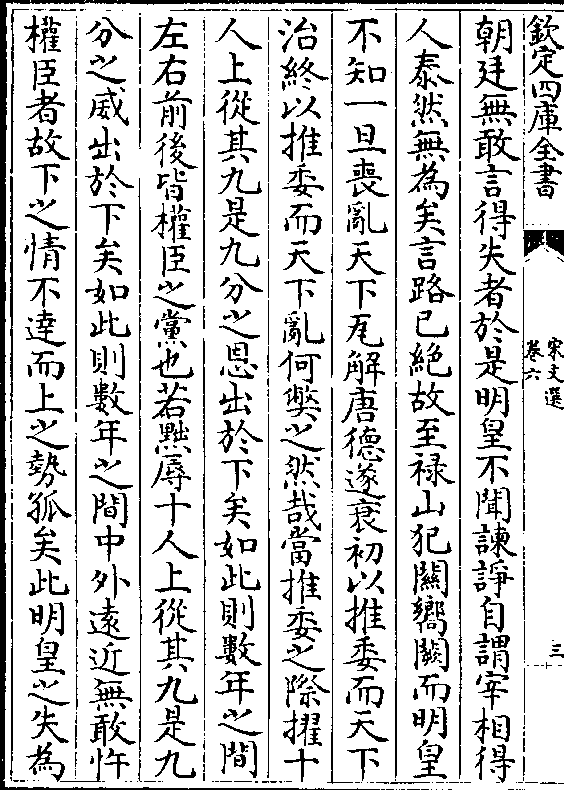 欽定四庫全書
宋文選
卷六
三
朝廷無敢言得失者於是明皇不聞諫諍自謂宰相得
人泰然無為矣言路已絶故至禄山犯闗嚮闕而明皇
不知一旦喪亂天下瓦解唐德遂衰初以推委而天下
治終以推委而天下亂何弊之然哉當推委之際擢十
人上從其九是九分之恩出於下矣如此則數年之間
左右前後皆權臣之黨也若黜辱十人上從其九是九
分之威出於下矣如此則數年之間中外遠近無敢忤
權臣者故下之情不達而上之勢孤矣此明皇之失為